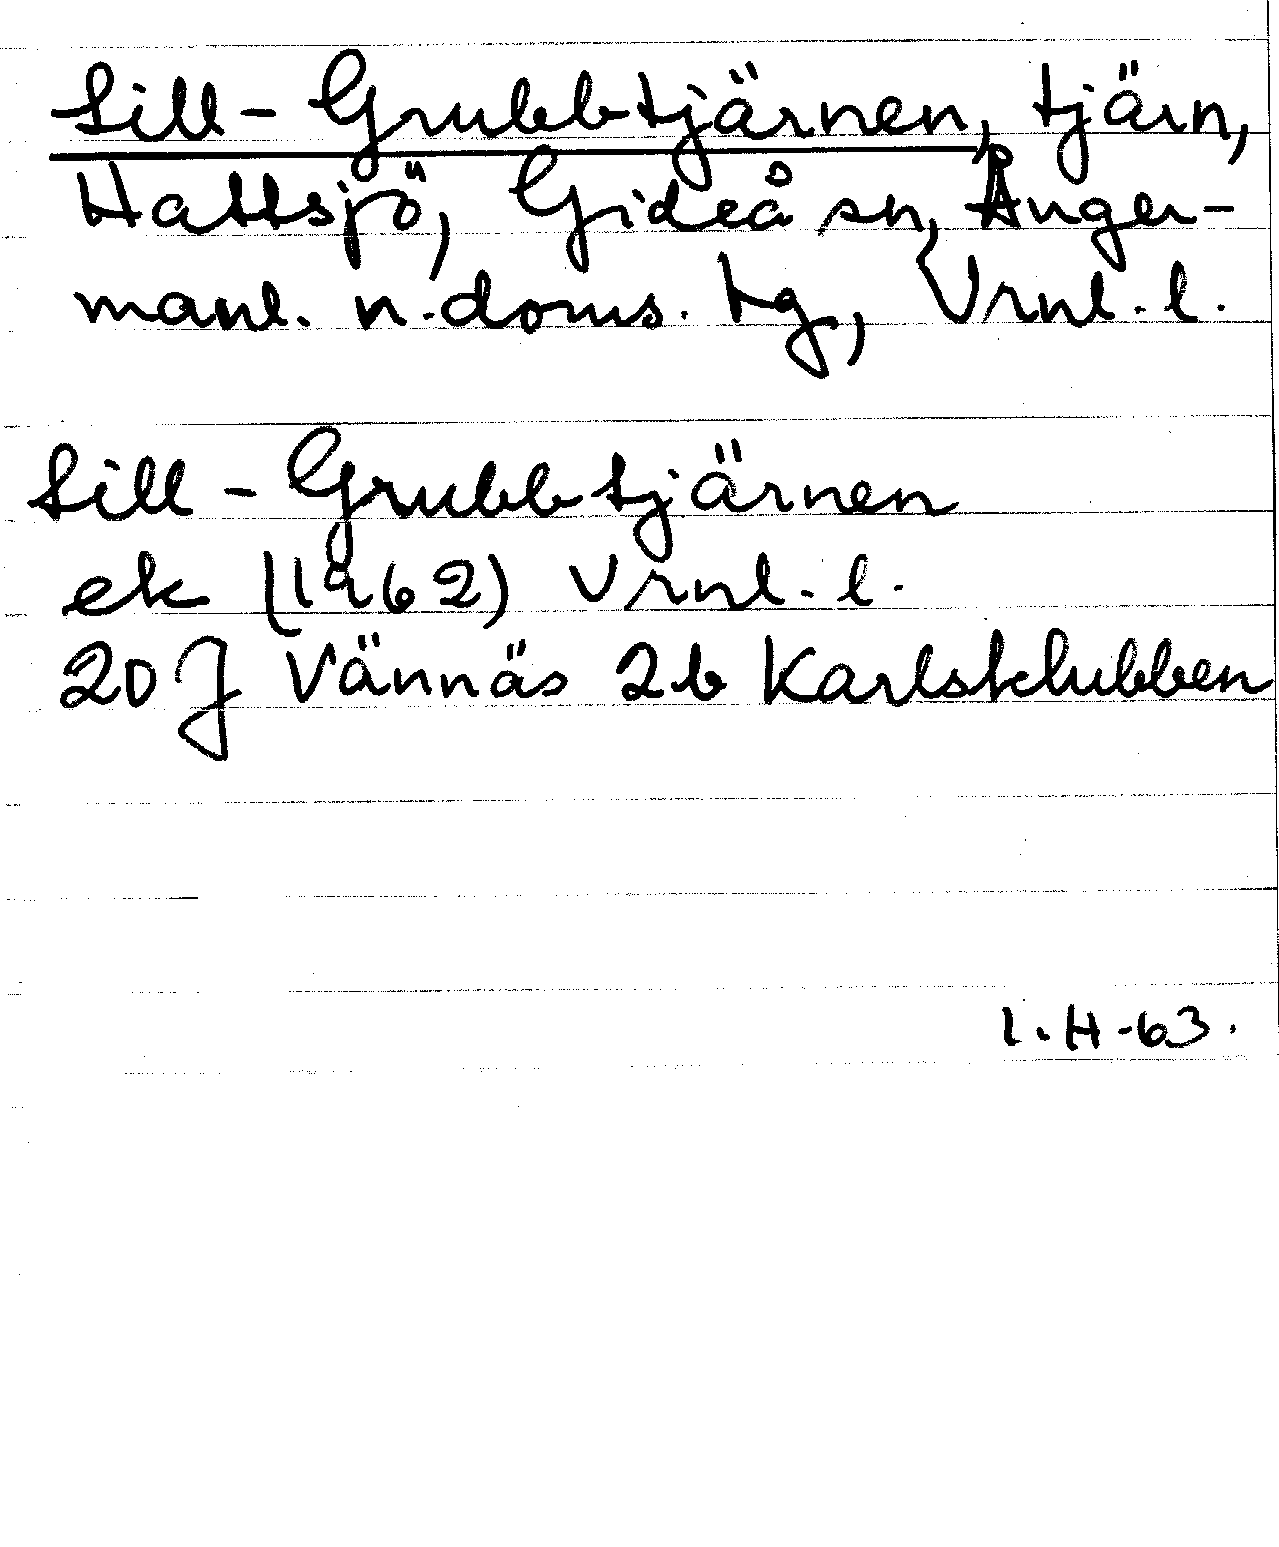 Lill-Grubbtjärnen, tjärn,
Hattsjö, Gideå sn, Ånger-
manl. n. doms. tg, Vrnl. l.
Lill-Grubbtjärnen
ek (1962) Vrnl. l.
20 J Vännäs 2b Karlsklubben
I.H-63.